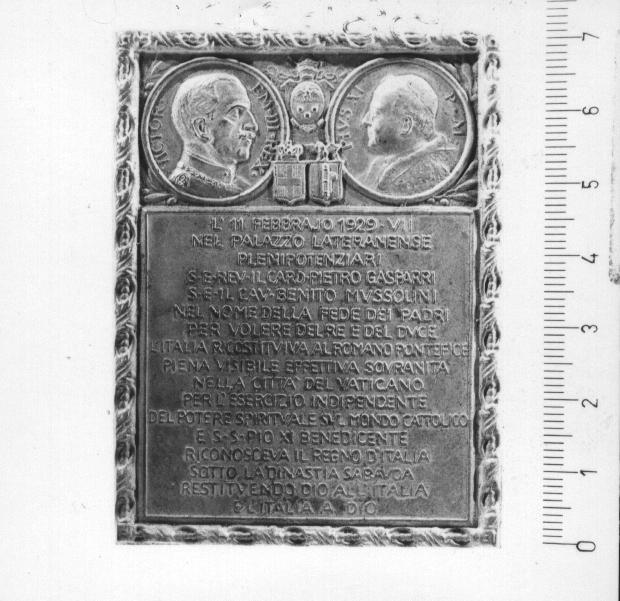 VICTOR EM·III·REX PIVS XI P·M
L' 11 FEBBRAJO 1929 - VII
NEL PALAZZO LATERANENSE
PLENIPOTENZIARI
S·E·REV·IL CARD·PIETRO GASPARRI
S·E·IL CAV·BENITO MVSSOLINI
NEL NOME DELLA FEDE DEI PADRI
PER VOLERE DEL RE E DEL DVCE
L'ITALIA RICOSTITVIVA AL ROMANO PONTEFICE
PIENA VISIBILE EFFETTIVA SOVRANITA
NELLA CITTA DEL VATICANO
PER L'ESERCIZIO INDIPENDENTE
DEL POTERE SPIRITVALE SVL MONDO CATTOLICO
E S·S·PIO XI BENEDICENTE
RICONOSCEVA IL REGNO D'ITALIA
SOTTO LA DINASTIA SABAVDA
RESTITVENDO DIO ALL'ITALIA
E L'ITALIA A DIO
7
6
5
4
3
2
1
0